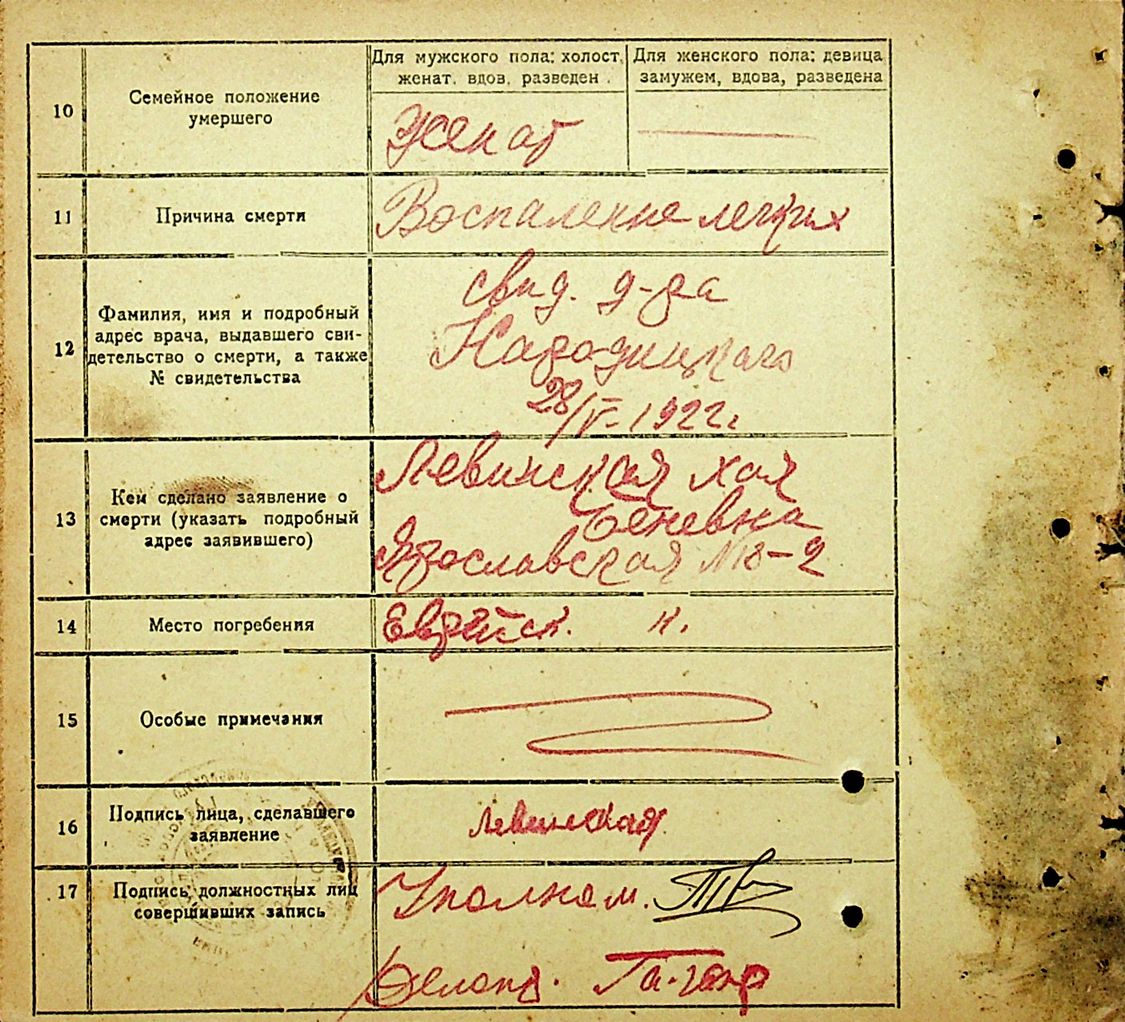 Для мужского пола: холост,
женат, вдов, разведен.
Для женского пола: девица
замужем, вдова, разведена
10
Семейное положение
умершего
Женат
11
Причина смерти
Воспаление легких
12
Фамилия, имя и подробный
адрес врача, выдавшего сви-
детельство о смерти, а также
№ свидетельства
свид. д-ра
Народицкого
28/IV-1922г
13
Кем сделано заявление о
смерти (указать подробный
адрес заявившего)
Левинская Хая
Беневна
Ярославская №13-2
14
Место погребения
Еврейск. к.
15
Особые примечания
16
Подпись лица, сделавшего
заявление
Левинская
17
Подпись должностных лиц
совершивших запись
Уполном.
Делопр.